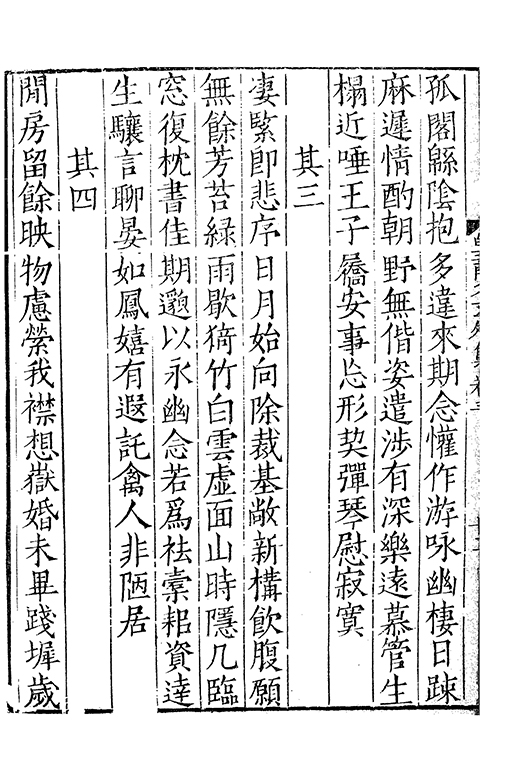 孤閣緜陰抱多違來期念懽作游咏幽棲日踈
麻遲情酌朝野無偕姿遣涉有深樂遠慕管生
榻近唾王子屩安事忘形契彈琴慰寂寞
其三
淒緊卽悲序日月始向除裁基敞新構飲腹願
無餘芳苔綠雨歇猗竹白雲虛面山時隱几臨
窓復枕書佳期邈以永幽念若爲袪橐耜資達
生驤言聊晏如鳳嬉有遐託禽人非陋居
其四
閒房留餘映物慮縈我襟想嶽婚未畢踐墀歲